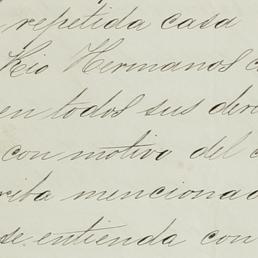 repetida casa
Rio Hermanos
en todos sus
con motivo del
mencionad
se entienda con